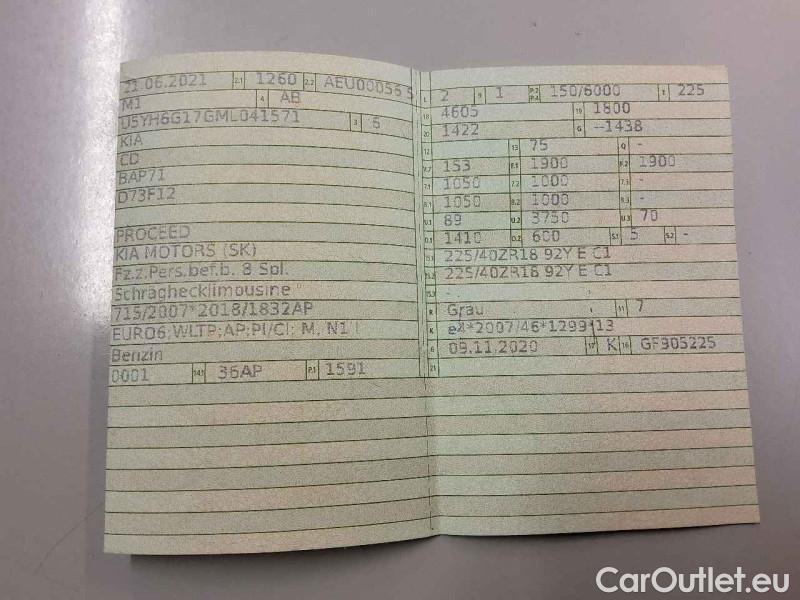 21.06.2021 2.1 1260 2.2 AEU00056 5
M1 4 AB
U5YH6G17GML041571 3 6
KIA
CD
BAP71
D73F12
PROCEED
KIA MOTORS (SK)
Fz.z.Pers.bef.b. 8 Spl.
Schräghecklimousine
715/2007*2018/1832AP
EURO6;WLTP;AP;PI/CI; M, N1 I
Benzin
0001 14.1 36AP P.1 1591
L 2 9 1 P.2 P.4 150/6000 T 225
18 4605 19 1800
20 1422 G --1438
12 13 75 Q -
V.7 153 F.1 1900 F.2 1900
7.1 1050 7.2 1000 7.3 -
8.1 1050 8.2 1000 8.3 -
U.1 89 U.2 3750 U.3 70
O.1 1410 O.2 600 S.1 5 S.2 -
15.1 225/40ZR18 92Y E C1
15.2 225/40ZR18 92Y E C1
15.3 -
R Grau 11 7
K e4*2007/46*1299*13
6 09.11.2020 17 K 16 GF905225
21
CarOutlet.eu